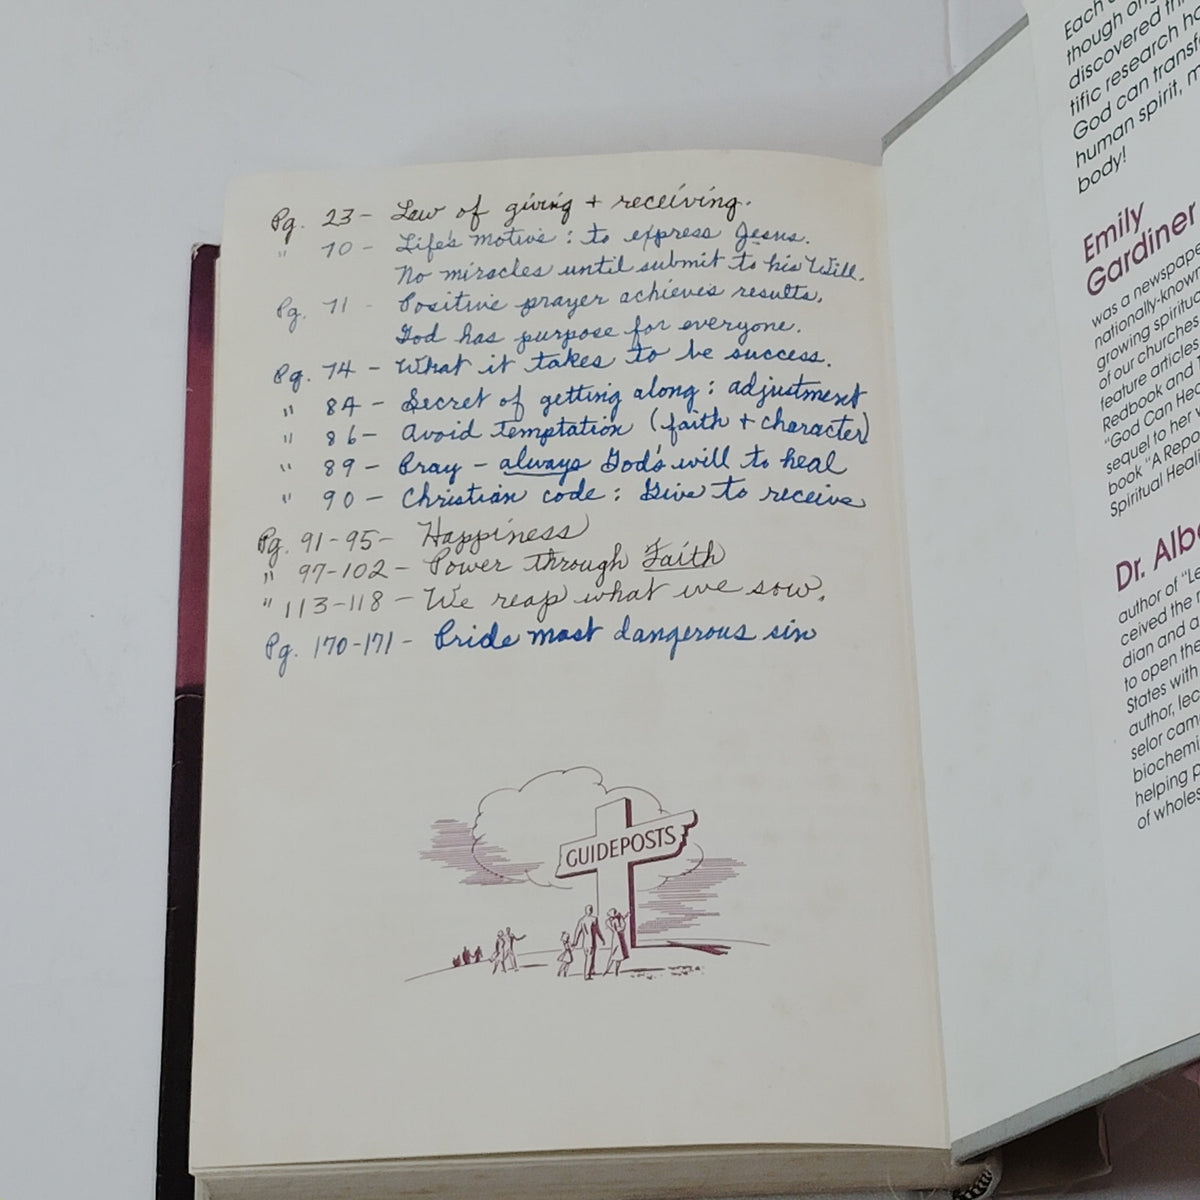 Pg. 23 - Law of giving + receiving.
" 70 - Life's motive : to express Jesus.
No miracles until submit to his Will.
Pg. 71 - Positive prayer achieves results.
God has purpose for everyone.
Pg. 74 - What it takes to be success.
" 84 - Secret of getting along : adjustment
" 86 - Avoid temptation (faith + character)
" 89 - Pray - always God's will to heal
" 90 - Christian code : Give to receive
Pg. 91-95 - Happiness
" 97-102 - Power through Faith
" 113-118 - We reap what we sow.
Pg. 170-171 - Pride most dangerous sin
GUIDEPOSTS
Each
though
discovered
tific research
God can
human spirit,
body!
Emily
Gardiner
was a newspape
nationally-known
growing spiritua
of our churches
feature articles
Redbook and
"God Can Hea
sequel to her
book "A Repo
Spiritual Heali
Dr. Albe
author of "Le
ceived the
dian and a
to open the
States with
author, lec
selor cam
biochemi
helping p
of wholes